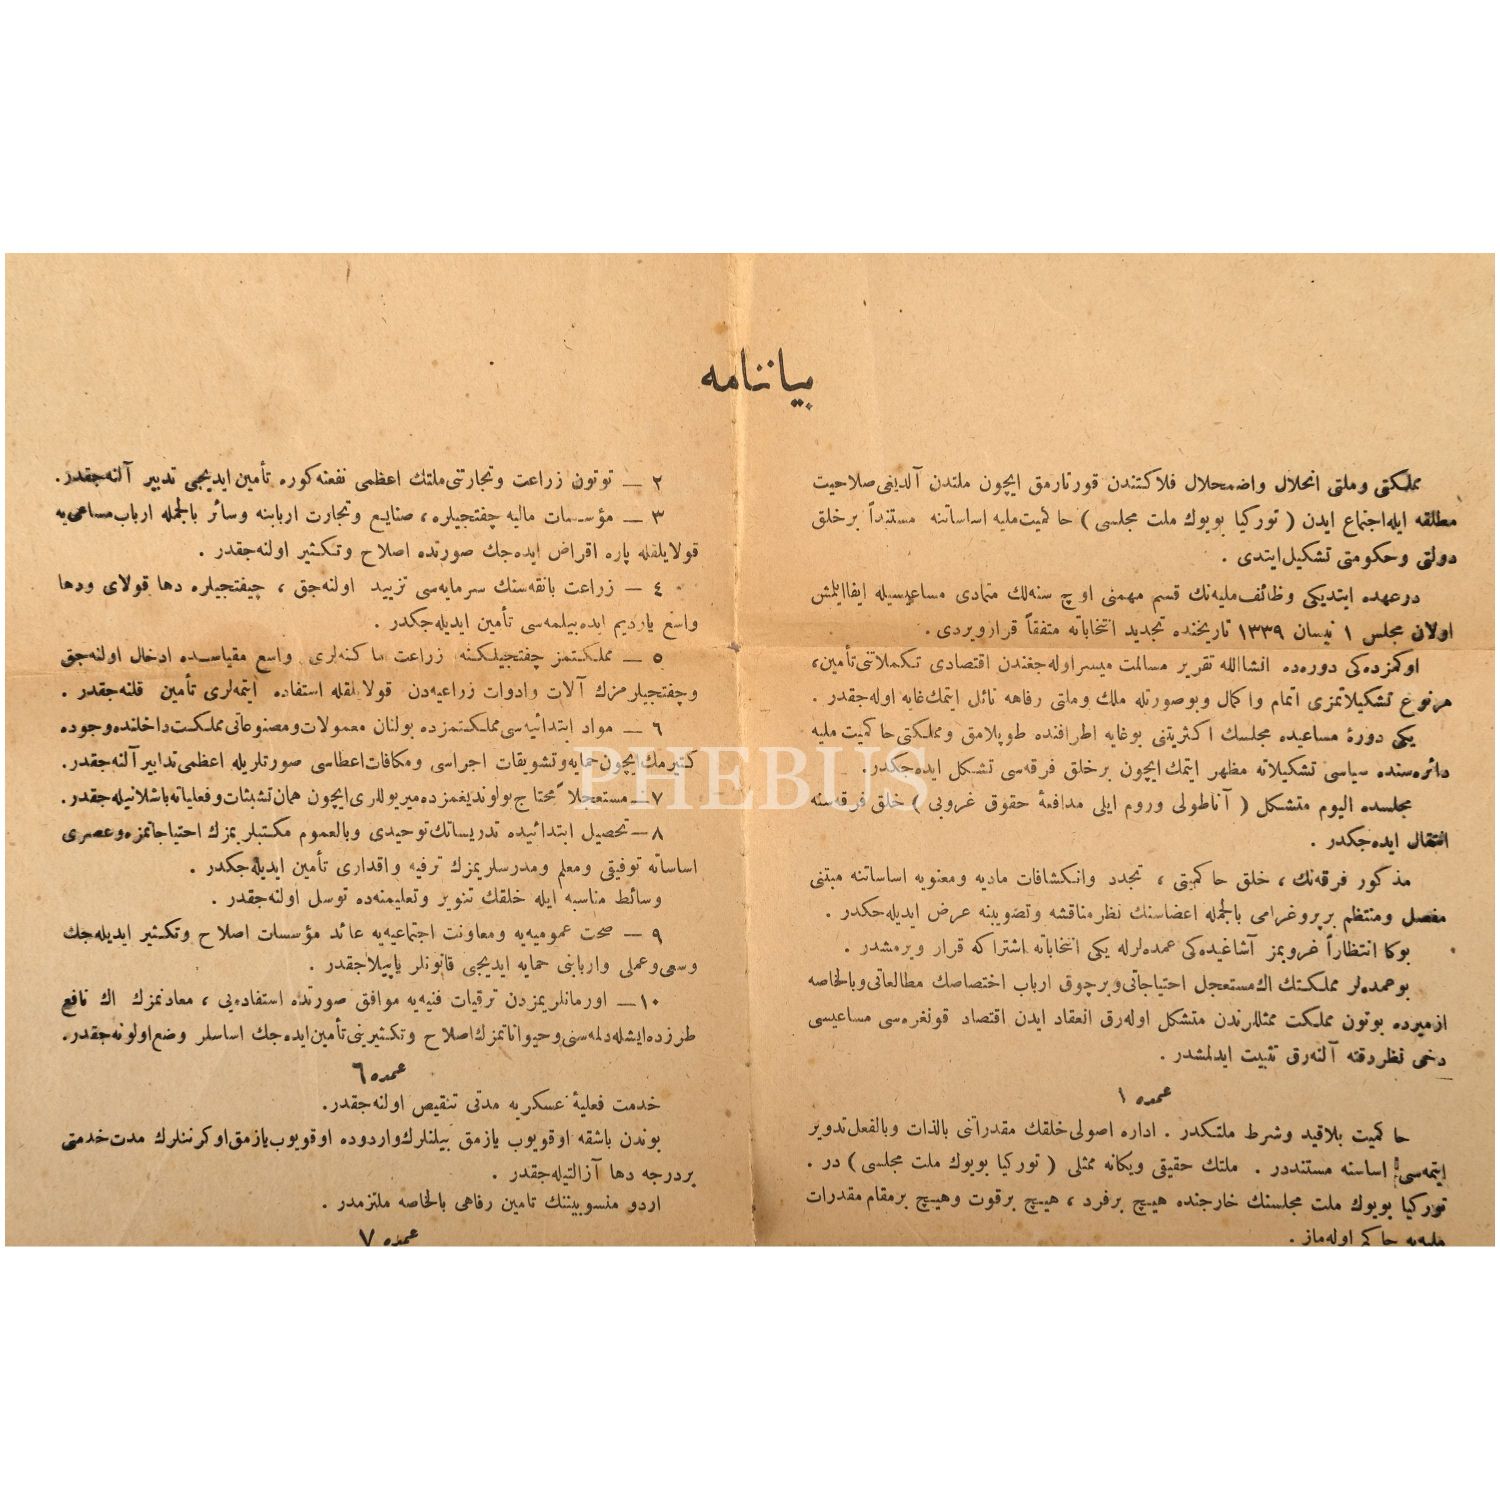 بياننامه
مملكتی وملتی انحلال واضمحلال فلاكتندن قورتارمق ايچون ملتدن آلديغی صلاحيت
مطلقه ايله اجتماع ايدن ( توركيا بويوك ملت مجلسی ) حاكميت مليه اساساتنه مستنداً برخلق
دولتی وحكومتی تشكيل ايتدی .
درعهده ايتديكی وظائف مليه‌نك قسم مهمنی اوچ سنه‌لك متمادی مساعيسيله ايفا ايلمش
اولان مجلس ١ نيسان ١٣٣٩ تاريخنده تجديد انتخاباته متفقاً قرار ويردی .
اوكمزده‌كی دوره‌ده انشاالله تقرير مسالمت ميسر اوله‌جغندن اقتصادی تكملاتنی تأمين،
هر نوع تشكيلاتمزی اتمام واكمال وبوصورتله ملك وملتی رفاهه نائل ايتمك غايه اوله‌جقدر .
يكی دورۀ مساعيده مجلسك اكثريتنی بوغايه اطرافنده طوپلامق ومملكتی حاكميت مليه
دائره‌سنده سياسی تشكيلاته مظهر ايتمك ايچون برخلق فرقه‌سی تشكل ايده‌جكدر.
مجلسده اليوم متشكل ( آناطولی وروم ايلی مدافعۀ حقوق غروبی ) خلق فرقه‌سنه
انتقال ايده‌جكدر .
مذكور فرقه‌نك ، خلق حاكميتی ، تجدد وانكشافات ماديه ومعنويه اساساتنه مبتنی
مفصل ومنتظم برپروغرامی بالجمله اعضاسنك نظر مناقشه وتصويبنه عرض ايديله‌جكدر .
بوكا انتظاراً غروبمز آشاغيده‌كی عمده‌لرله يكی انتخاباته اشتراكه قرار ويرمشدر .
بوعمده‌لر مملكتك اك مستعجل احتياجاتی وبرچوق ارباب اختصاصك مطالعاتی وبالخاصه
ازميرده بوتون مملكت ممثللرندن متشكل اوله‌رق انعقاد ايدن اقتصاد قونغره‌سی مساعيسی
دخی نظر دقته آلنه‌رق تثبيت ايدلمشدر .
عمده ١
حاكميت بلاقيد وشرط ملتكدر . اداره اصولی خلقك مقدراتنی بالذات وبالفعل تدوير
ايتمه‌سی اساسنه مستنددر . ملتك حقيقی ويكانه ممثلی ( توركيا بويوك ملت مجلسی ) در .
توركيا بويوك ملت مجلسنك خارجنده هيچ برفرد ، هيچ برقوت وهيچ برمقام مقدرات
مليه‌يه حاكم اوله‌ماز .
٢ — توتون زراعت وتجارتنی ملتك اعظمی نفعنه كوره تأمين ايديجی تدبير آلنه‌جقدر .
٣ — مؤسسات ماليه چفتجيلره ، صنايع وتجارت اربابنه وسائر بالجمله ارباب مساعی‌يه
قولايلقله پاره اقراض ايده‌جك صورتده اصلاح وتكثير اولنه‌جقدر .
٤ — زراعت بانقه‌سنك سرمايه‌سی تزييد اولنه‌جق ، چيفتجيلره دها قولای ودها
واسع يارديم ايده‌بيلمه‌سی تأمين ايديله‌جكدر .
٥ — مملكتمز چفتجيلكنه زراعت ماكنه‌لری واسع مقياسده ادخال اولنه‌جق
وچفتجيلرمزك آلات وادوات زراعيه‌دن قولايلقله استفاده ايتمه‌لری تأمين قلنه‌جقدر .
٦ — مواد ابتدائيه‌سی مملكتمزده بولنان معمولات ومصنوعاتی مملكت داخلنده وجوده
كتيرمك ايچون حمايه وتشويقات اجراسی ومكافات اعطاسی صورتلريله اعظمی تدابير آلنه‌جقدر.
٧ — مستعجلاً محتاج بولونديغمز دميريوللری ايچون همان تشبثات وفعلياته باشلانيله‌جقدر.
٨ — تحصيل ابتدائيده تدريساتك توحيدی وبالعموم مكتبلريمزك احتياجاتمزه وعصری
اساساته توفيقی ومعلم ومدرسلريمزك ترفيه واقداری تأمين ايديله‌جكدر .
وسائط مناسبه ايله خلقك تنوير وتعليمنه‌ده توسل اولنه‌جقدر .
٩ — صحت عموميه‌يه ومعاونت اجتماعيه‌يه عائد مؤسسات اصلاح وتكثير ايديله‌جك
وسعی وعملی واربابنی حمايه ايديجی قانونلر ياپيلاجقدر .
١٠ — اورمانلريمزدن ترقيات فنيه‌يه موافق صورتده استفاده‌يی ، معادنمزك اك نافع
طرزده ايشله‌دلمه‌سنی وحيواناتمزك اصلاح وتكثيرينی تأمين ايده‌جك اساسلر وضع اولونه‌جقدر.
عمده ٦
خدمت فعليۀ عسكريه مدتی تنقيص اولنه‌جقدر.
بوندن باشقه اوقويوب يازمق بيلنلرك واردوده اوقويوب يازمق اوكرننلرك مدت خدمتی
بردرجه دها آزالتيله‌جقدر .
اردو منسوبيننك تامين رفاهی بالخاصه ملتزمدر .
عمده ٧
PHEBUS